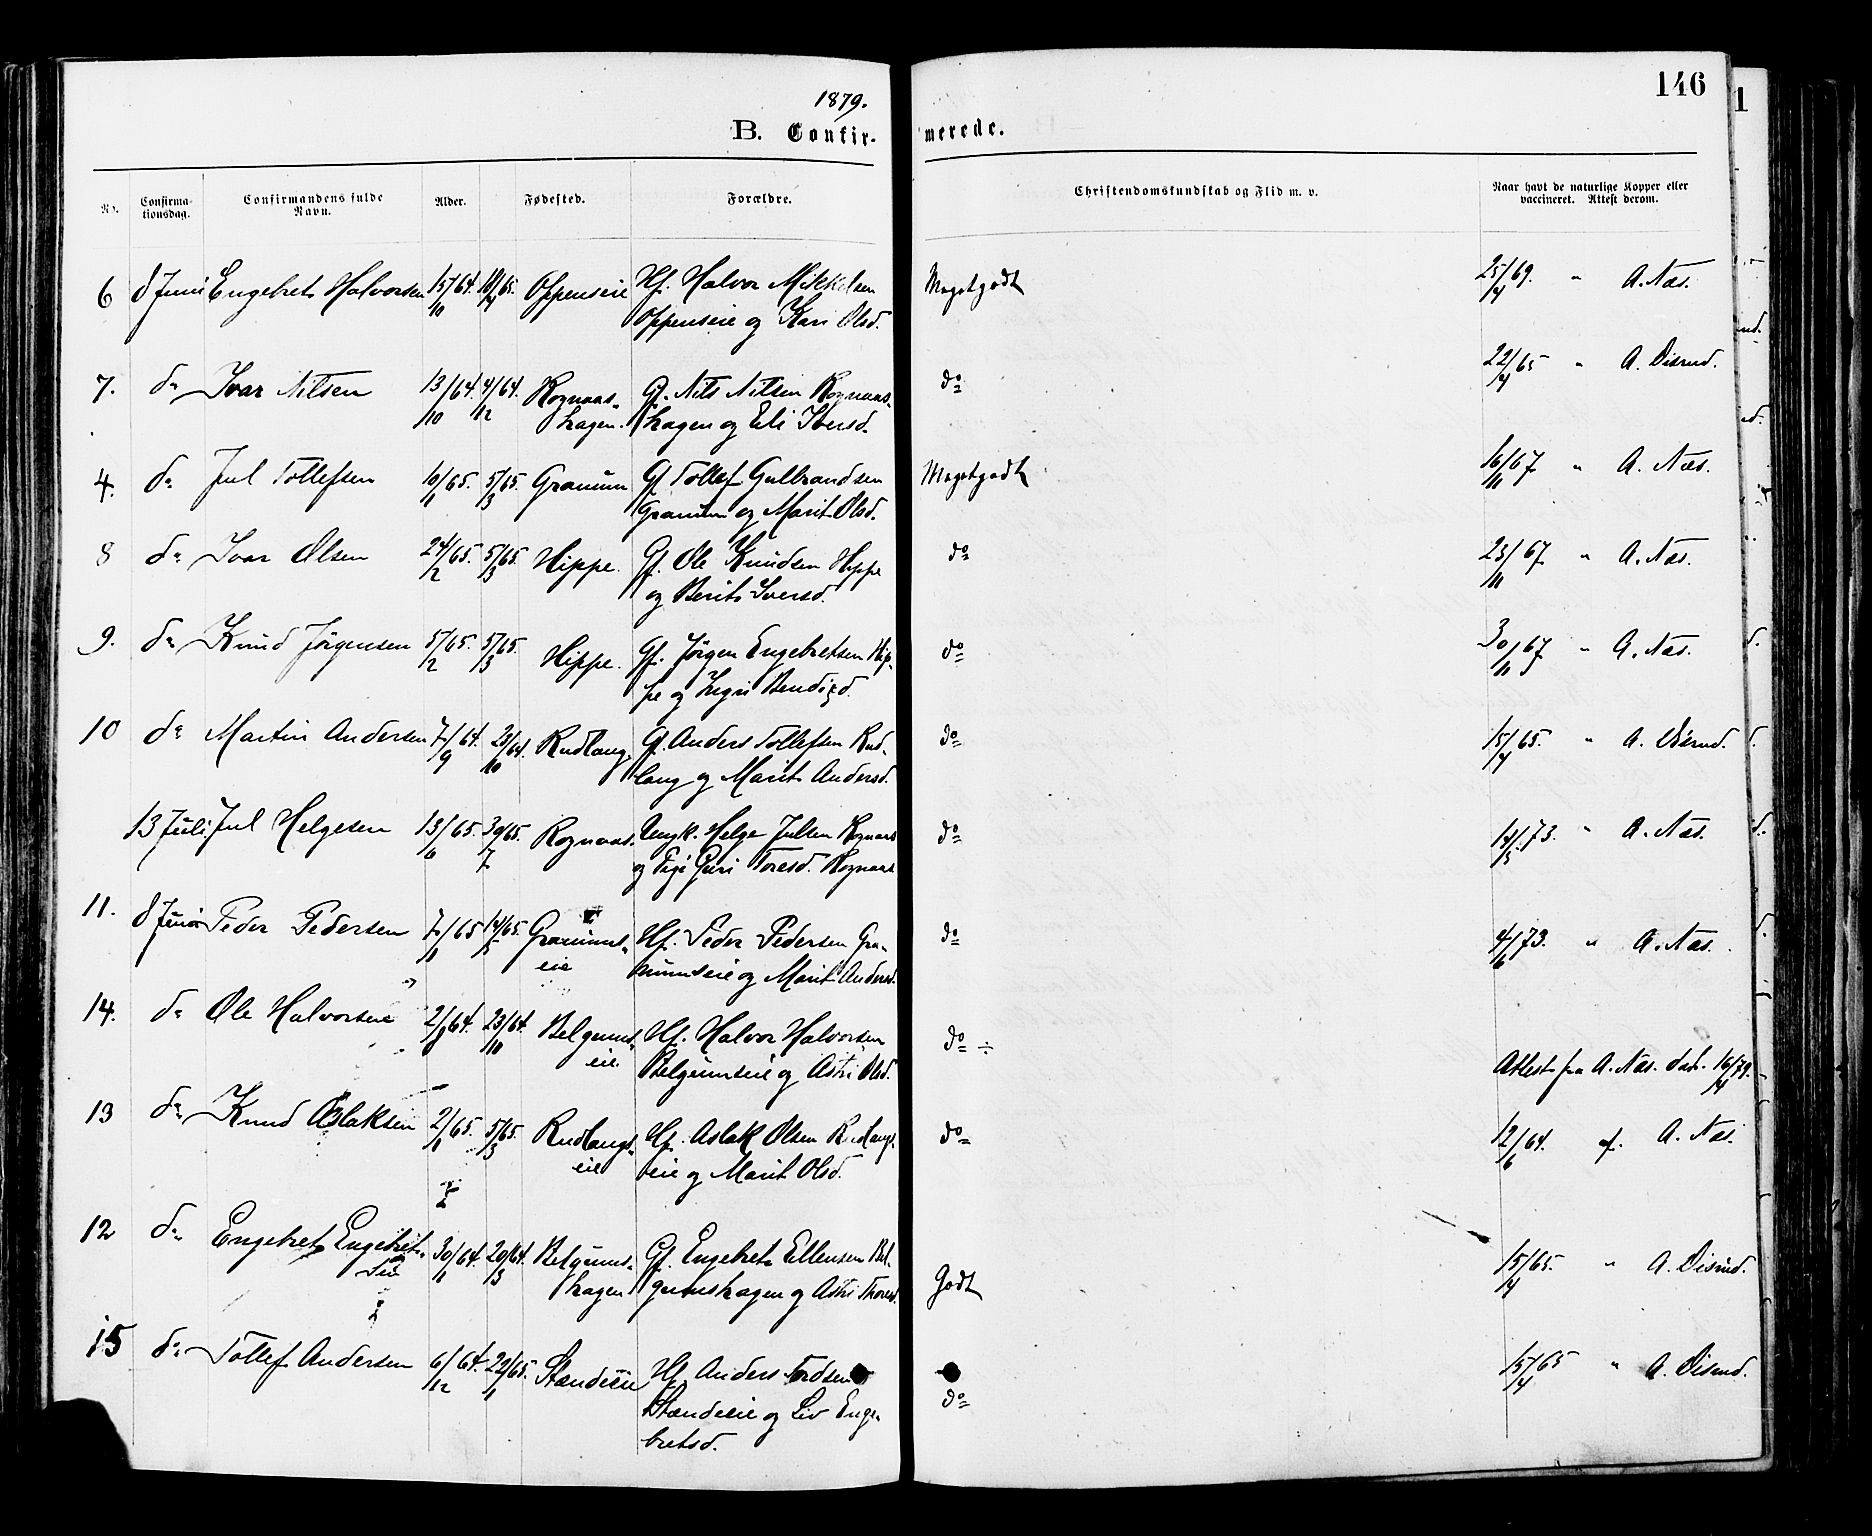 146
1879.
B. Confir- merede.
No. Confirma-tionsdag. Confirmandens fulde Navn. Alder. Fødested. Forældre. Christendomskundskab og Flid m. v. Naar havt de naturlige Kopper eller vaccineret. Attest derom.
6 8 Juni Engebret Halvorsen 15/10 64. 16/4 65. Oppenseie Hf. Halvor Mikkelsen Megetgodt 25/4 69. " A. Næs.
Oppenseie og Kari Olsd.
7. do Ivar Nilsen 13/10 64. 4/12 64. Rognaas- Gf. Nils Nilsen Rognaas- do 22/4 65 " A. Disrud.
hagen. hagen og Eli Iversd.
4. do Jul Tollefsen 10/1 65. 5/3 65. Granum Gf Tollef Gulbrandsen Megetgodt 16/11 67 " A. Næs.
Granum og Marit Olsd.
8 do Ivar Olsen 24/2 65. 5/3 65. Hippe. Gf. Ole Knudsen Hippe do 23/11 67. " A. Næs.
og Berit Iversd.
9. do Knud Jørgensen 5/2 65. 5/3 65. Hippe. Gf. Jørgen Engebretsen Hip- do 30/11 67 " A. Næs.
pe og Ingri Bendixd.
10 do Martin Andersen 7/9 64. 23/10 64. Rudlang. Gf. Anders Tollefsen Rud- do 15/4 65. " A. Disrud.
lang og Marit Andersd.
13 Juli Jul Helgesen 13/6 65. 30/7 65. Rognaas. Ungk. Helge Julsen Rognaas do 14/5 73. " A. Næs.
og Pige Guri Toresd. Rognaas
11. 8 Juni Peder Pedersen 7/1 65 14/5 65. Granums- Hf. Peder Pedersen Gra- do 4/6 73. " A. Næs.
eie numseie og Marit Andersd.
14. do Ole Halvorsen 2/8 64. 23/10 64. Belgums- Hf. Halvor Halvorsen do ÷
eie. Belgumseie og Astri Olsd. Attest fra A. Næs. dat. 16/4 79.
13 do Knud Aslaksen 2/1 65. 5/3 65. Rudlangs- Hf. Aslak Olsen Rudlangs- do 12/6 64. af. A. Næs.
eie eie og Marit Olsd.
12 do Engebret Engebret- 30/1 64. 20/3 64. Belgums- Gf. Engebret Ellensen Bel- Godt 15/4 65. " A. Disrud.
sen hagen gumshagen og Astri Thoresd.
15 do Tollef Andersen 6/12 64. 22/1 65. Stændeeie Hf. Anders Tordsen do 15/4 65 " A. Disrud.
Stændeeie og Liv Enge-
bretsd.